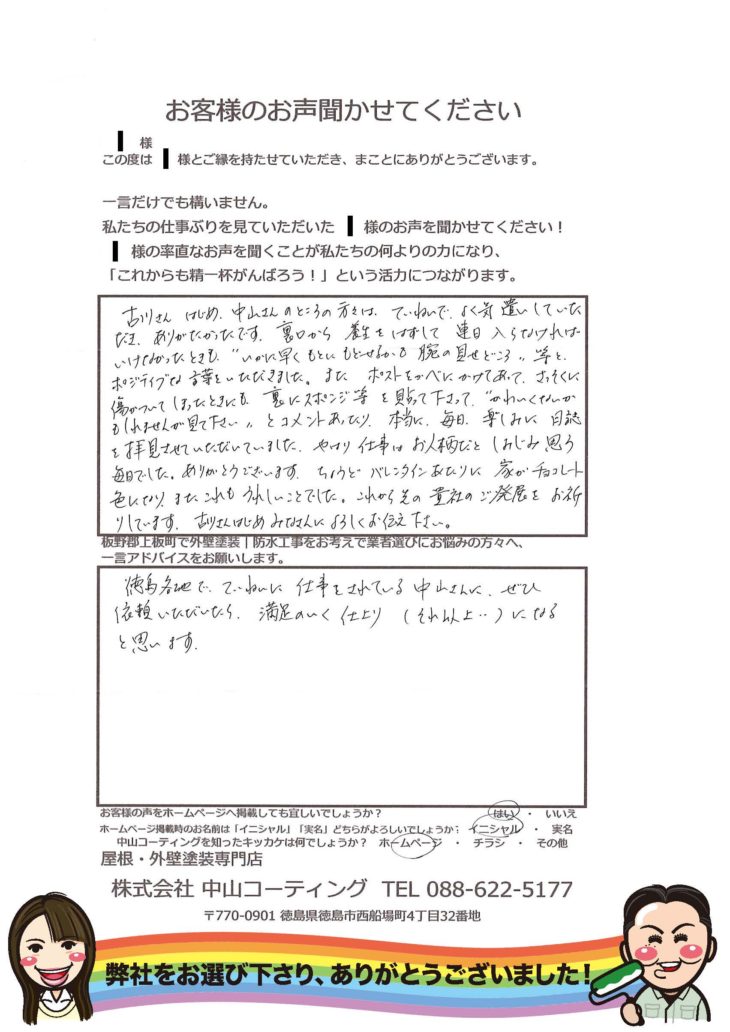 お客様のお声聞かせてください
様
この度は 様とご縁を持たせていただき、まことにありがとうございます。
一言だけでも構いません。
私たちの仕事ぶりを見ていただいた 様のお声を聞かせてください！
様の率直なお声を聞くことが私たちの何よりの力になり、
「これからも精一杯がんばろう！」という活力につながります。
古川さん はじめ、中山さんのところの方々は、ていねいで、よく気遣いしていた
だき、ありがたかったです。裏口から 養生をはずして 連日 入らなければ
いけなかったときも、"いかに早くもとにもどせるかも 腕の見せどころ"等と、
ポジティブな言葉をいただきました。また ポストをかべにかけてあって、さっそくに
傷がついてしまったときにも、裏にスポンジ等を貼って下さって、"かわいくないか
もしれませんが見て下さい"とコメントあったり、本当に、毎日、楽しみに 日誌
を拝見させていただいていました。やはり仕事はお人柄だと しみじみ思う
毎日でした。ありがとうございます。ちょうど バレンタインあたりに 家がチョコレート
色になり、またこれも うれしいことでした。これから先の 貴社の ご発展を お祈
りしています。古川さんはじめ みなさんに よろしくお伝え下さい。
板野郡上板町で外壁塗装｜防水工事をお考えで業者選びにお悩みの方々へ、
一言アドバイスをお願いします。
徳島各地で、ていねいに 仕事をされている 中山さんに、ぜひ
依頼いただいたら、満足のいく 仕上り (それ以上‥)になる
と思います。
お客様の声をホームページへ掲載しても宜しいでしょうか？ はい ・ いいえ
ホームページ掲載時のお名前は「イニシャル」「実名」どちらがよろしいでしょうか； イニシャル ・ 実名
中山コーティングを知ったキッカケは何でしょうか？ ホームページ ・ チラシ ・ その他
屋根・外壁塗装専門店
株式会社 中山コーティング TEL 088-622-5177
〒770-0901 徳島県徳島市西船場町4丁目32番地
弊社をお選び下さり、ありがとうございました！